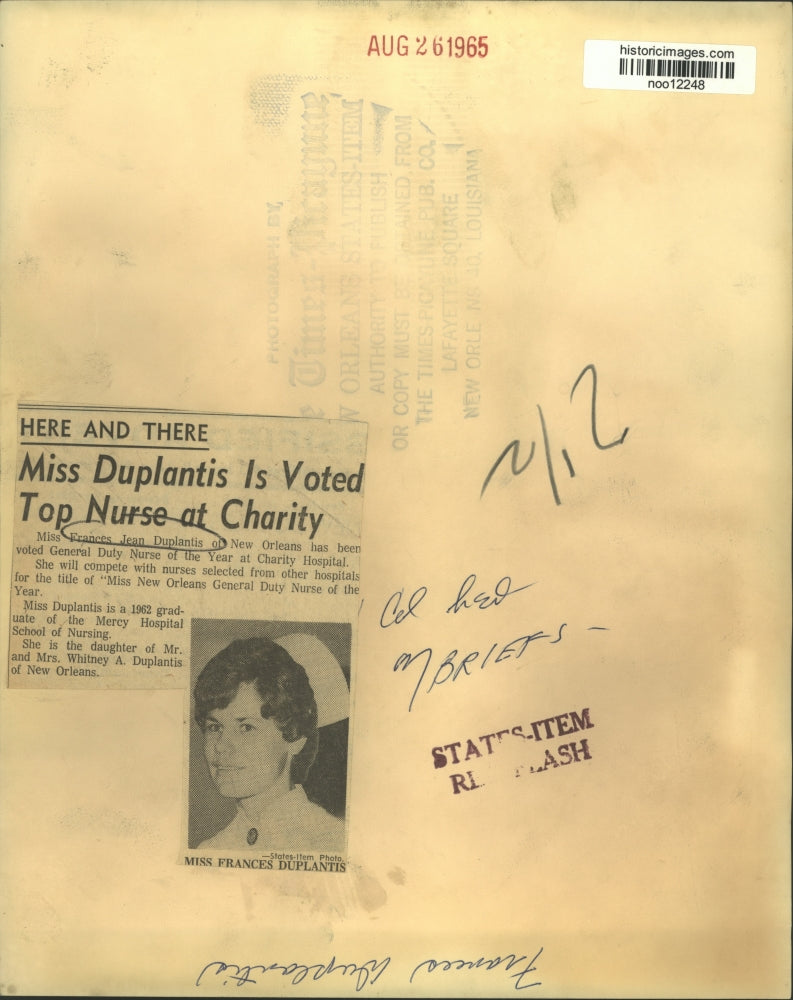 AUG 26 1965
historicimages.com
noo12248
PHOTOGRAPH BY
The Times-Picayune
NEW ORLEANS STATES-ITEM
AUTHORITY TO PUBLISH
OR COPY MUST BE OBTAINED FROM
THE TIMES PICAYUNE PUB. CO.
LAFAYETTE SQUARE
NEW ORLEANS 10, LOUISIANA
HERE AND THERE
Miss Duplantis Is Voted
Top Nurse at Charity
Miss Frances Jean Duplantis of New Orleans has been
voted General Duty Nurse of the Year at Charity Hospital.
She will compete with nurses selected from other hospitals
for the title of "Miss New Orleans General Duty Nurse of the
Year.
Miss Duplantis is a 1962 grad-
uate of the Mercy Hospital
School of Nursing.
She is the daughter of Mr.
and Mrs. Whitney A. Duplantis
of New Orleans.
—States-Item Photo.
MISS FRANCES DUPLANTIS
BRIEFS —
STATES-ITEM
Frances Duplantis